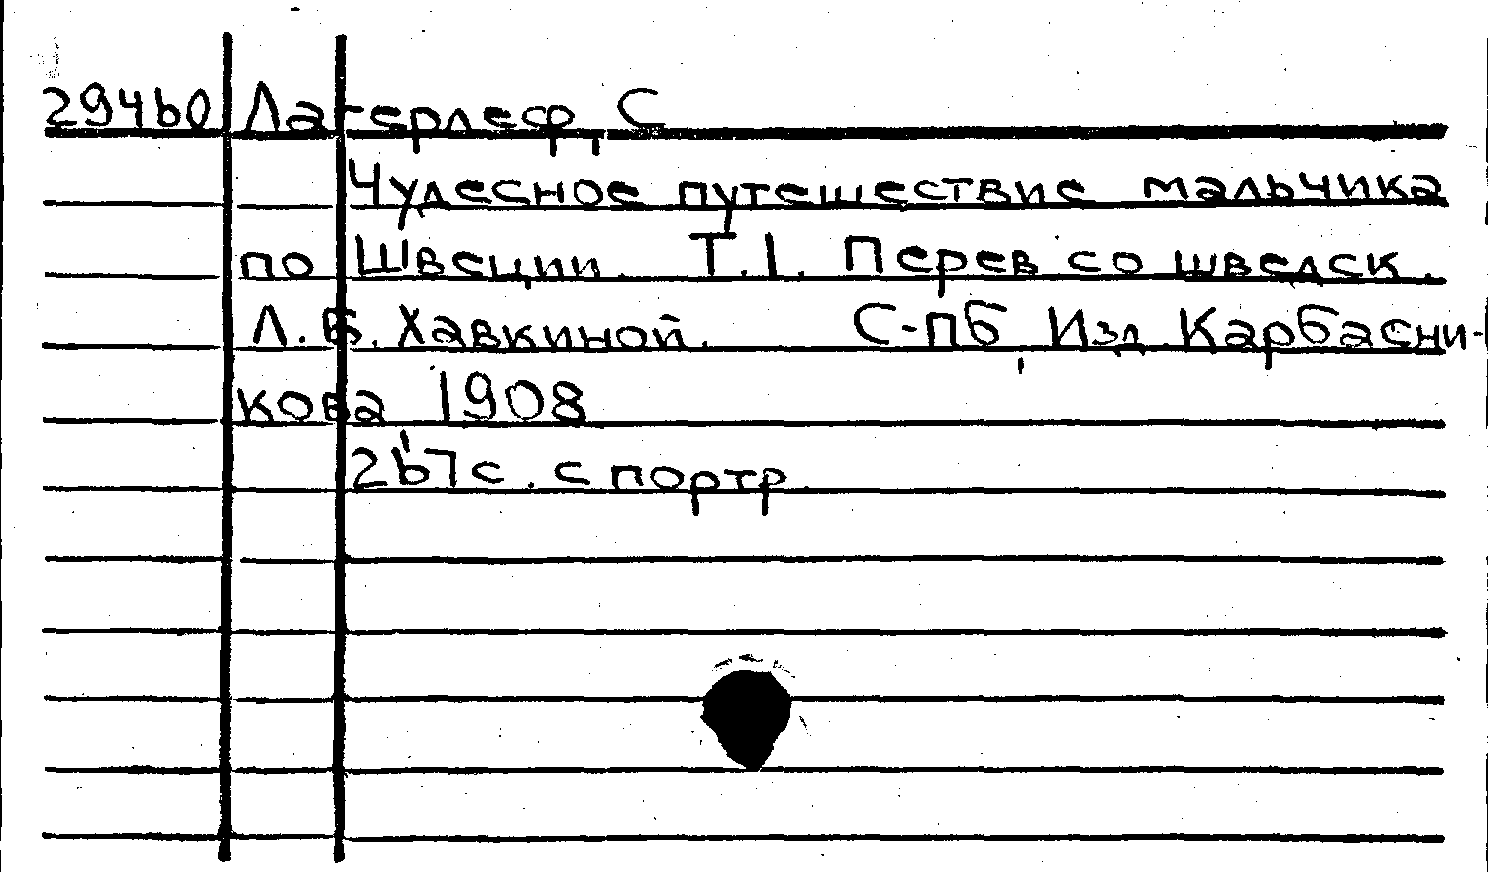 29460 Лагерлеф, С
Чудесное путешествие мальчика
по Швеции. Т.1. Перев со шведск.
Л.Б. Хавкиной. С-Пб, Изд. Карбасни-
кова 1908
267 с. с портр.